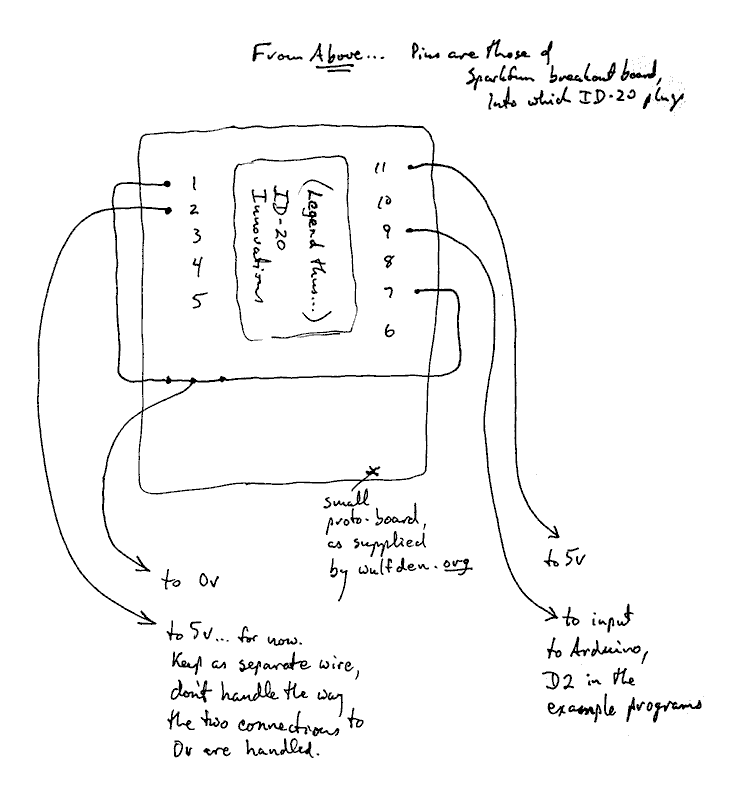 From Above... Pins are those of
Sparkfun breakout board,
Into which ID-20 plugs
1
2
3
4
5
(Legend thus...)
ID-20
Innovations
11
10
9
8
7
6
small
proto-board,
as supplied
by wulfden.org
to 0v
to 5v... for now.
Keep as separate wire,
don't handle the way
the two connections to
0v are handled.
to 5v
to input
to Arduino,
D2 in the
example programs